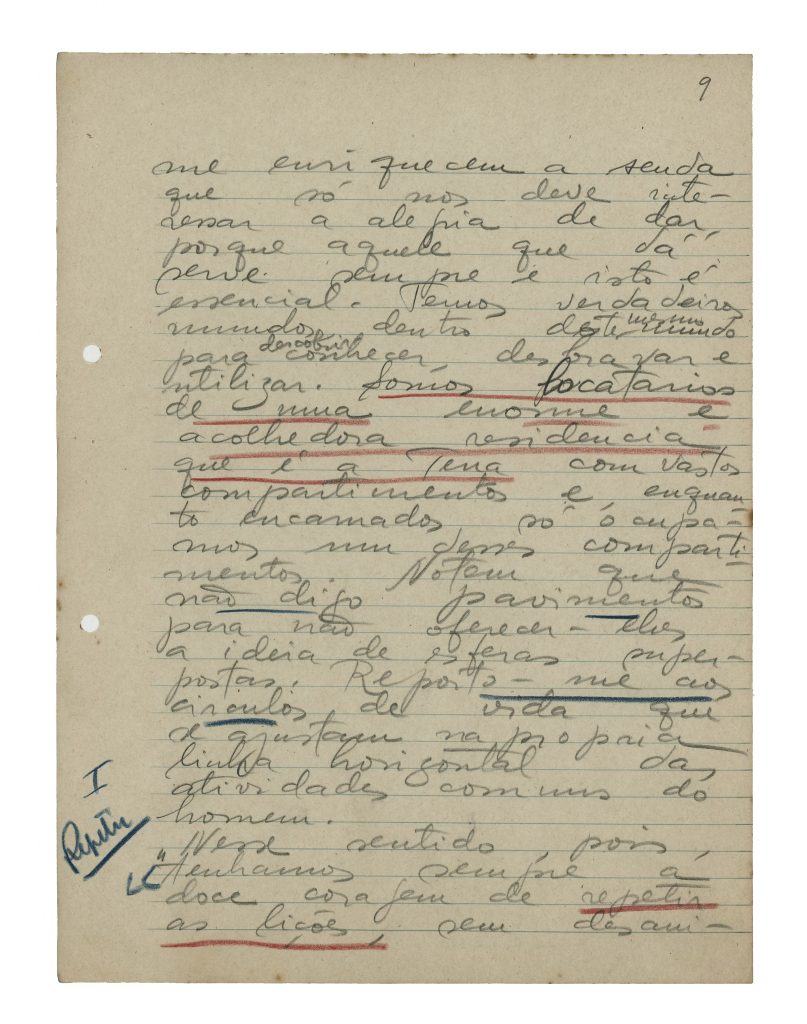 9
me enriquecem a senda
que só nos deve inte-
ressar a alegria de dar,
porque aquele que dá
serve sempre e isto é
essencial. Temos verdadeiros
mundos, dentro deste mesmo mundo
para descobrir, conhecer, desbravar e
utilizar. Somos locatarios
de uma enorme e
acolhedora residencia,
que é a Terra com vastos
compartimentos e, enquan-
to encarnados, só ocupa-
mos um desses comparti-
mentos. Notem que
não digo pavimentos
para não oferecer-lhes
a ideia de esferas super-
postas. Reporto-me aos
circulos de vida que
se ajustam na propria
linha horizontal das
atividades comuns do
homem.
I
Repetir
Nesse sentido, pois,
"tenhamos sempre a
doce coragem de repetir
as lições, sem desani-